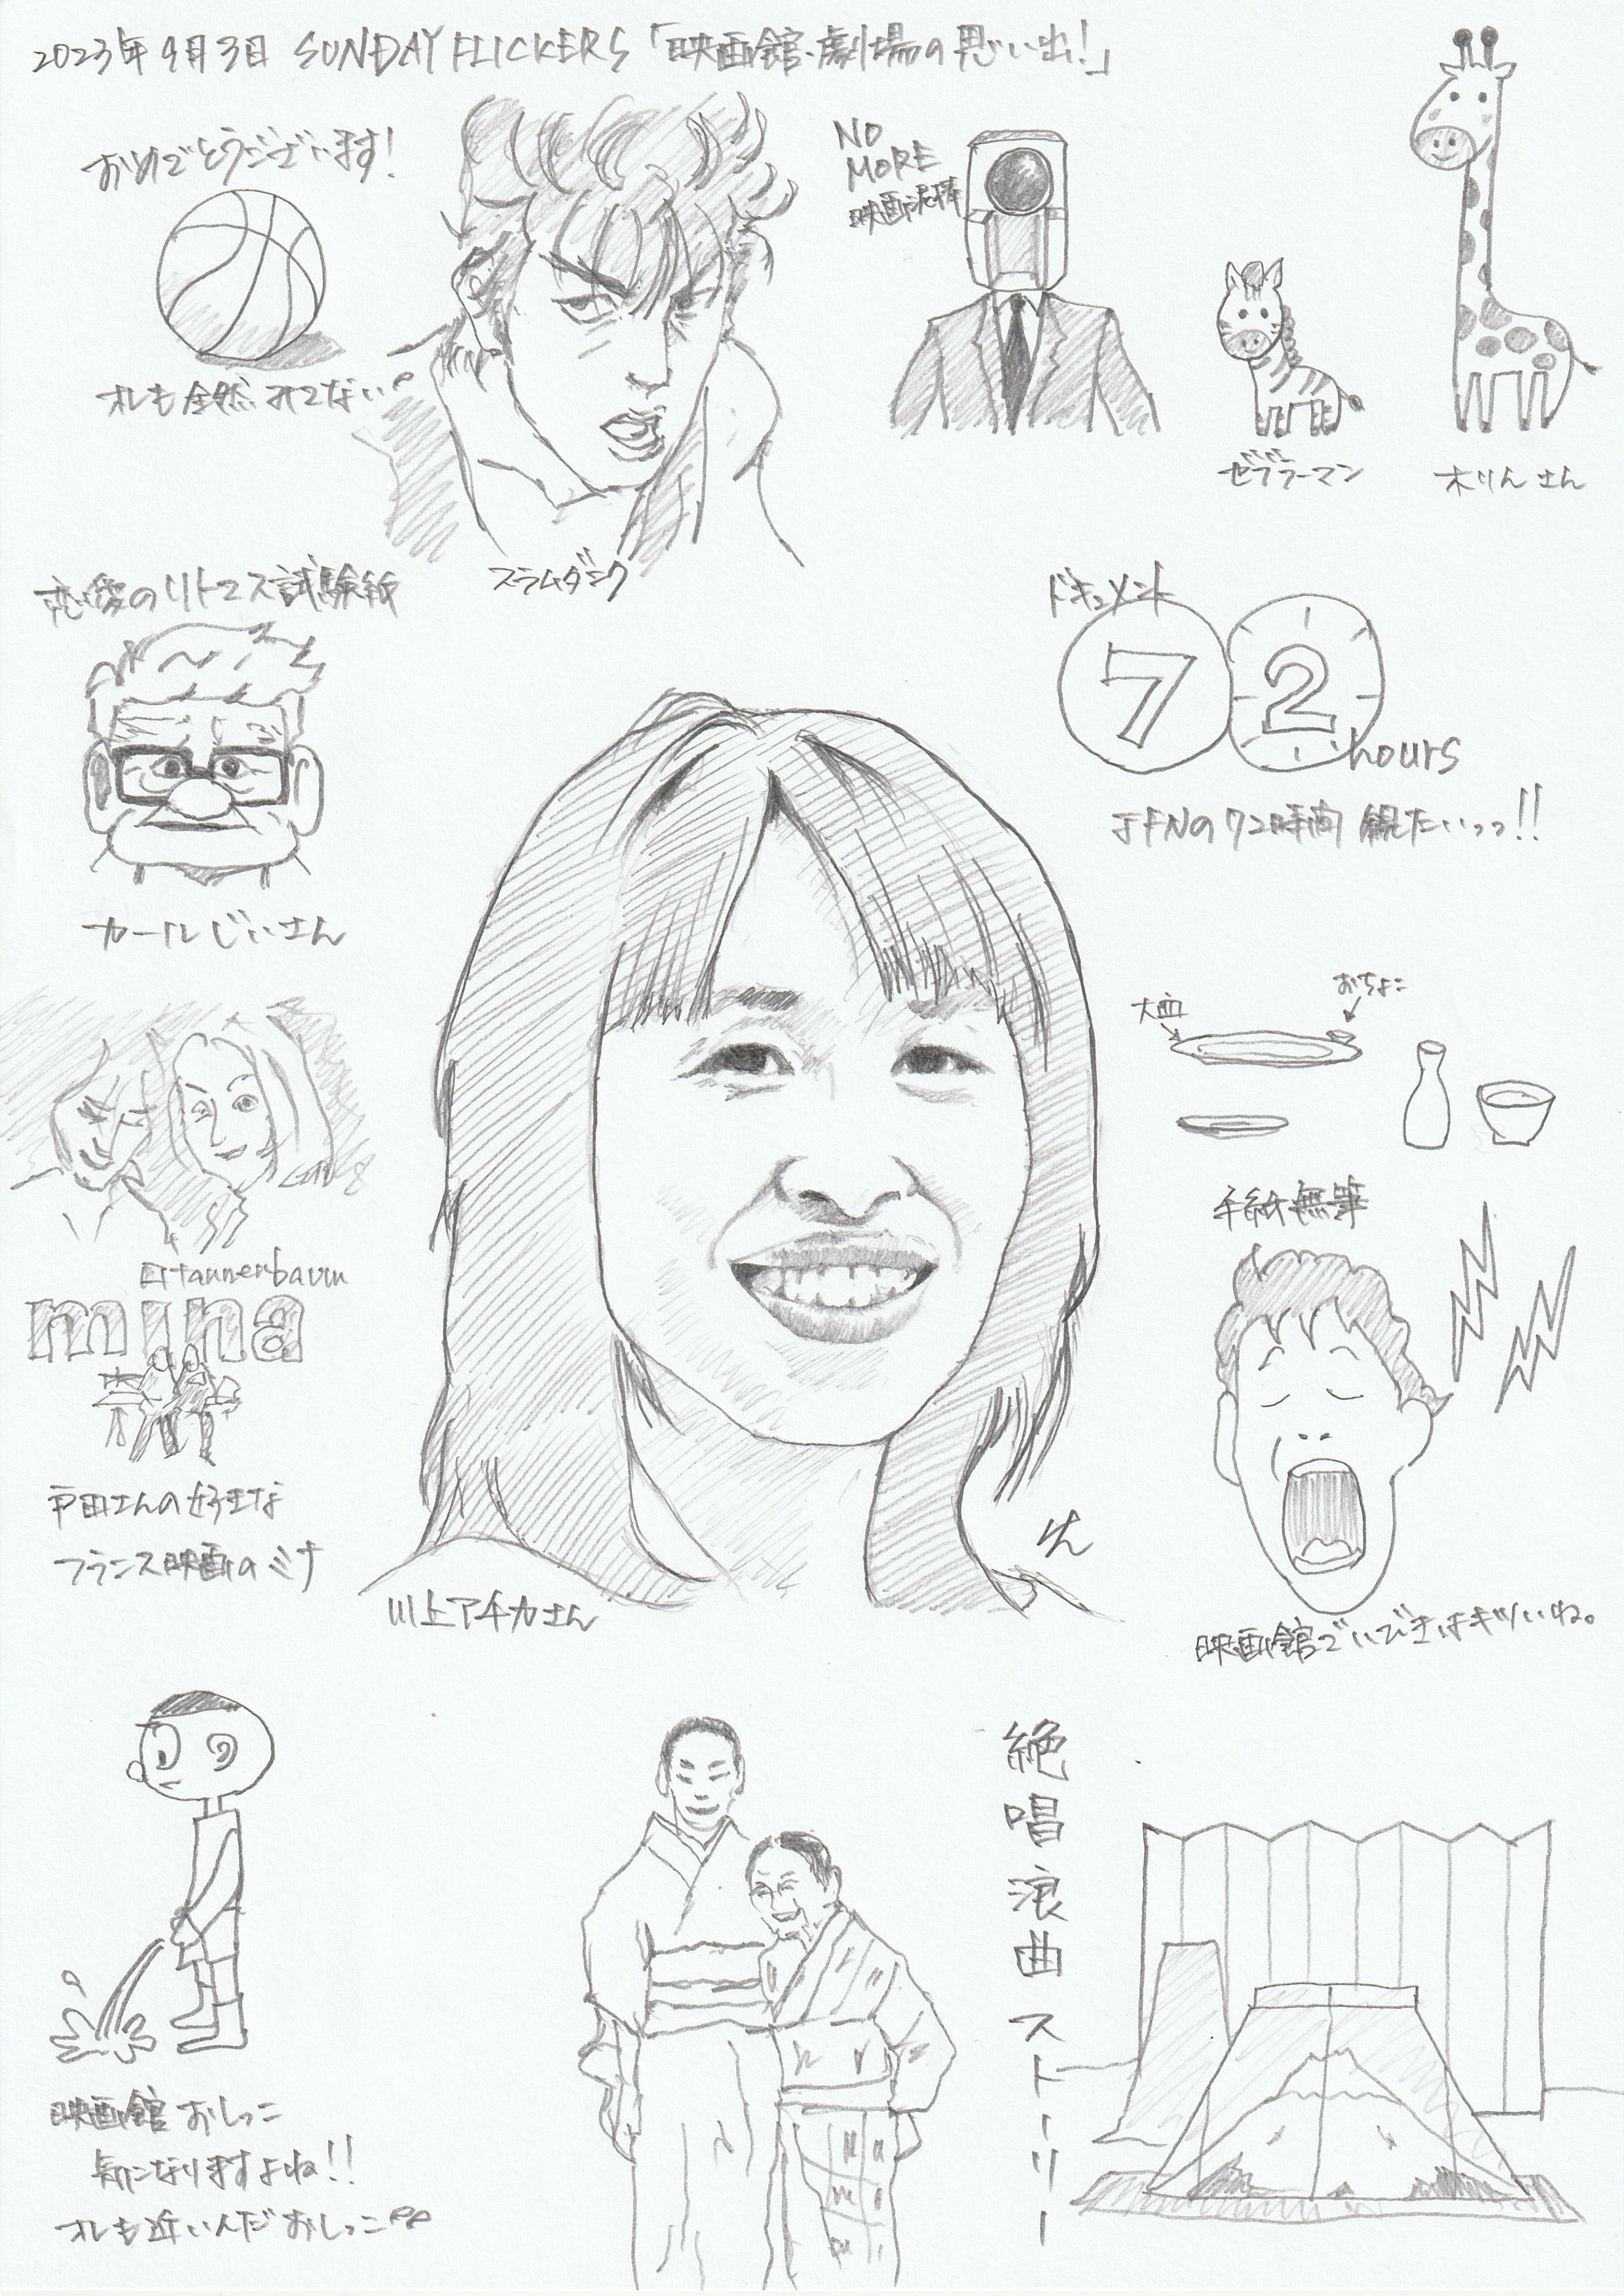 2023年9月3日 SUNDAY FLICKERS「映画館・劇場の思い出！」
おめでとうございます！
オレも全然みてない
スラムダンク
NO
MORE
映画泥棒
ゼブラーマン
木りんさん
恋愛のリトマス試験紙
カールじいさん
ドキュメント
72
hours
JFNの72時間 観たいっっ！！
大皿
おちょこ
手紙無筆
映画館でいびきはキツいね。
mina
戸田さんの好きな
フランス映画のミナ
川上アチカさん
けん
映画館おしっこ
気になりますよね！！
オレも近いんだおしっこ
絶唱浪曲ストーリー